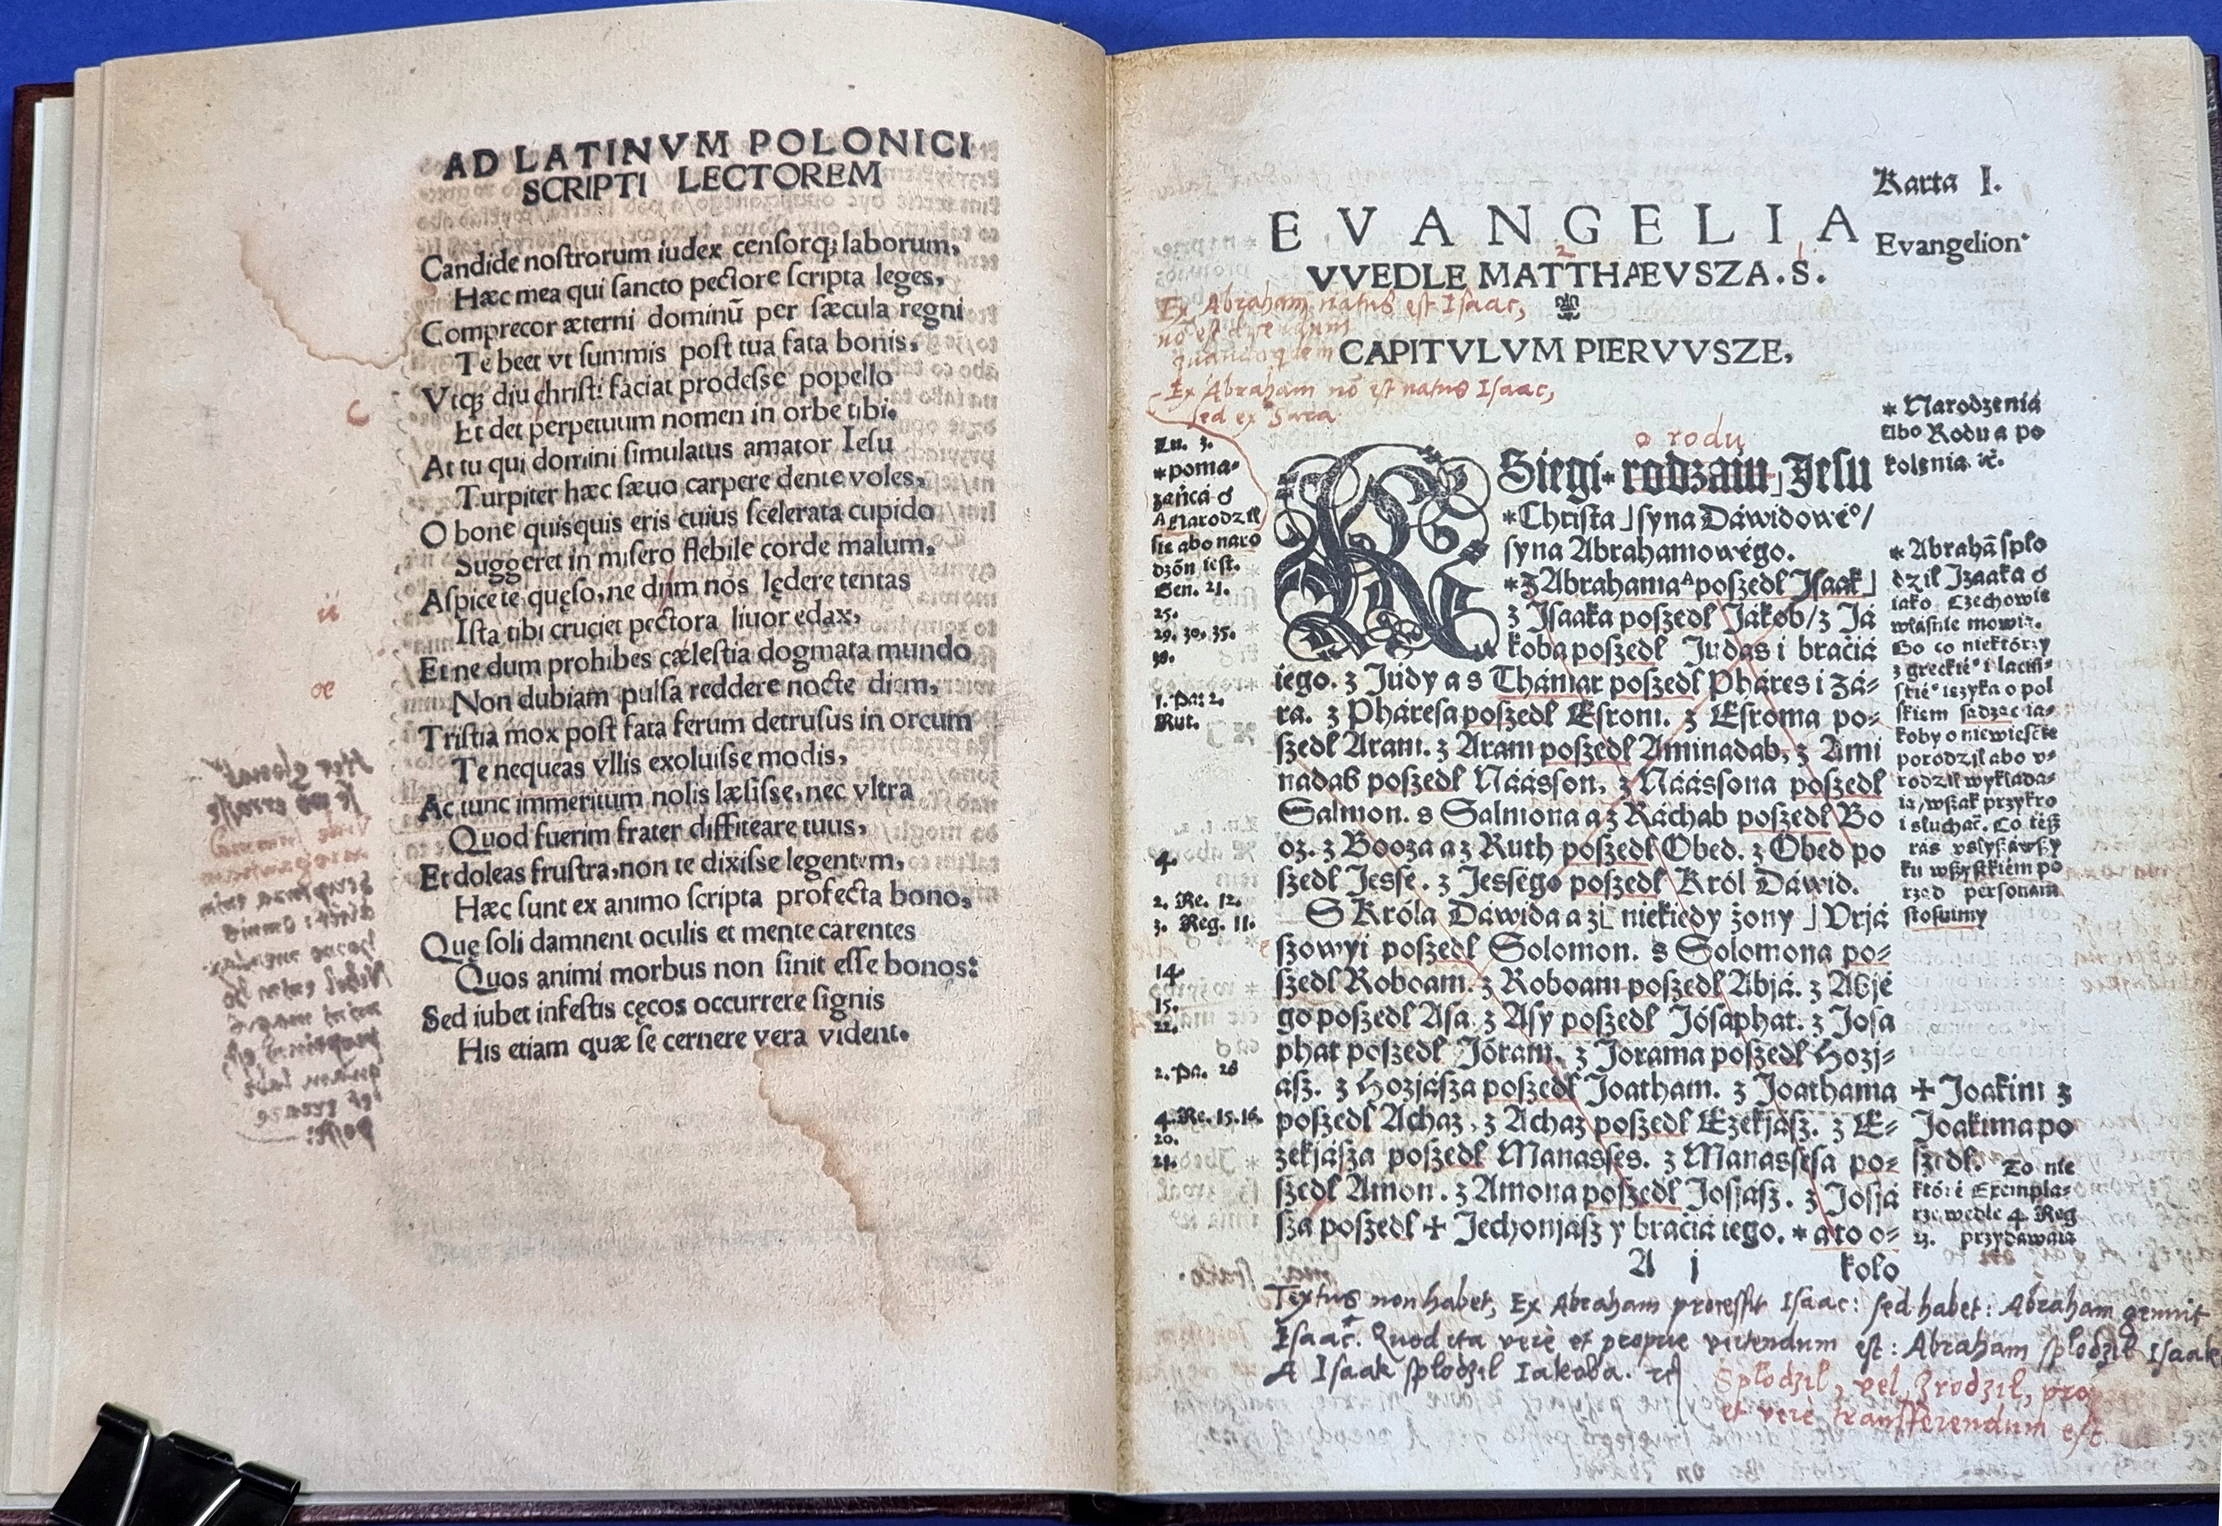 AD LATINVM POLONICI
SCRIPTI LECTOREM
Candide nostrorum iudex censorq; laborum,
Hæc mea qui sancto pectore scripta leges,
Comprecor æterni dominū per sæcula regni
Te beet vt summis post tua fata bonis,
Vtq; diu christi faciat prodesse popello
Et det perpetuum nomen in orbe tibi.
At tu qui domini simulatus amator Iesu
Turpiter hæc sæuo carpere dente voles,
O bone quisquis eris cuius scelerata cupido
Suggeret in misero flebile corde malum,
Aspice te quęso, ne dum nos lędere tentas
Ista tibi cruciet pectora liuor edax,
Et ne dum prohibes cælestia dogmata mundo
Non dubiam pulsa reddere nocte diem,
Tristia mox post fata ferum detrusus in orcum
Te nequeas vllis exoluisse modis,
Ac tunc immeritum nolis læsisse, nec vltra
Quod fuerim frater diffiteare tuus,
Et doleas frustra, non te dixisse legentem,
Hæc sunt ex animo scripta profecta bono,
Quę soli damnent oculis et mente carentes
Quos animi morbus non sinit esse bonos:
Sed iubet infestis cęcos occurrere signis
His etiam quæ se cernere vera vident.
Karta I.
EVANGELIA
Evangelion
VVEDLE MATTHAEVSZA. S.
Ex Abraham natus est Isaac,
CAPITVLVM PIERVVSZE,
Ex Abraham nō est natus Isaac,
sed ex Sara
* Narodzeniá
álbo Rodu a po
kolenia ić.
o rodu
KSiegi rodzaiu Jesu
*Christa syna Dáwidowé°/
syna Abrahamowégo.
*z Abrahama A poszedl Isaak
z Isaaka poszedl Jákob/ z Já
koba poszedl Judas i bráciá
iego. z Judy a s Thámar poszedl Pháres i Zá-
ra. z Pháresa poszedl Esrom. z Esroma po-
szedl Aram. z Aram poszedl Aminadab, z Ami
nadab poszedl Náásson, z Náássona poszedl
Salmon. s Salmona a z Ráchab poszedl Bo
oz. z Booza a z Ruth poszedl Obed. z Obed po
szedl Jesse. z Jessego poszedl Król Dáwid.
S Króla Dáwida a z niekiedy żony Vrjá
szowyi poszedl Solomon. s Solomona po-
szedl Roboam. z Roboam poszedl Abjá. z Abjé
go poszedl Asá. z Asy poszedl Jósaphat. z Josa
phat poszedl Jóram. z Jorama poszedl Hozj-
asz. z Hozjásza poszedl Joatham. z Joathama
poszedl Achaz, z Achaz poszedl Ezekjász. z E-
zekjásza poszedl Manasses. z Manassesa po-
szedl Amon. z Amona poszedl Josjász. z Josjá
sza poszedl + Jechonjász y bráciá iego. * a to o-
A j kolo
Lu. 3.
*poma-
záńcá
A Narodzil
sie abo naro
dzōn iest.
Gen. 21.
25.
29. 30. 35.
38.
1. Pa: 2.
Rut.
4.
2. Re. 12.
3. Reg. 11.
14.
15.
22.
2. Pa. 26
4. Re. 15. 16.
20.
21.
* Abrahā spło
dzil Izaaka
iako Czechowie
własnie mowią.
Bo co niektórzy
z greckié° i laciń-
skié° iezyka o pol
skiem sadzac ia-
koby o niewieście
porodzil abo v-
rodzil wyklada-
ia/ wszak przykro
i sluchać. Co też
ras vslyszawszy
ku wszystkiem po
rzad personam
stosuimy
+ Joakim z
Joakima po
szedl. To nie
któré Exempla-
rze wedle 4 Reg
23. przydawaia
Textus non habet, Ex Abraham processit Isaac: sed habet: Abraham genuit
Isaac. Quod ita vere et proprie vertendum est: Abraham spłodzil Isaak
A Isaak spłodzil Iakoba. etc
Spłodzil, vel zrodzil, prop
et vere transferendum est.